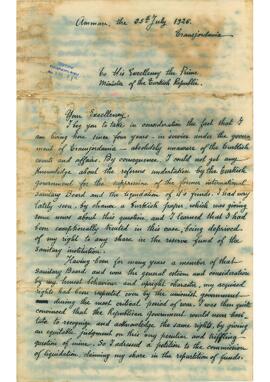 Amman, the 25th July 1926.
Transjordania
To His Excellency the Prime
Minister of the Turkish Republic.
Your Excellency,
I beg you to take in consideration the fact that I
am living here since four years - in service under the govern-
ment of Transjordania - absolutely unaware of the Turkish
events and affairs. By consequence, I could not get any
knowledge about the reforms undertaken by the Turkish
government for the suppression of the former international
sanitary Board and the liquidation of it's funds. I had very
lately seen, by chance, a Turkish paper, which was giving
some news about this question, and I learned that I had
been exceptionally treated in this case, being deprived
of my right to any share in the reserve fund of the
Sanitary institution.
Having been for many years a member of that
Sanitary Board and won the general esteem and consideration
by my honest behaviour and upright character, my acquired
rights had been respected even by the unionist government
during the most critical period of war. I was then quite
convinced that the Republican Government would never hesi-
tate to recognize and acknowledge the same rights, by giving
an equitable judgment on this very peculiar and
question of mine. So I adressed a petition to the commission
of liquidation, claiming my share in the repartition of funds.